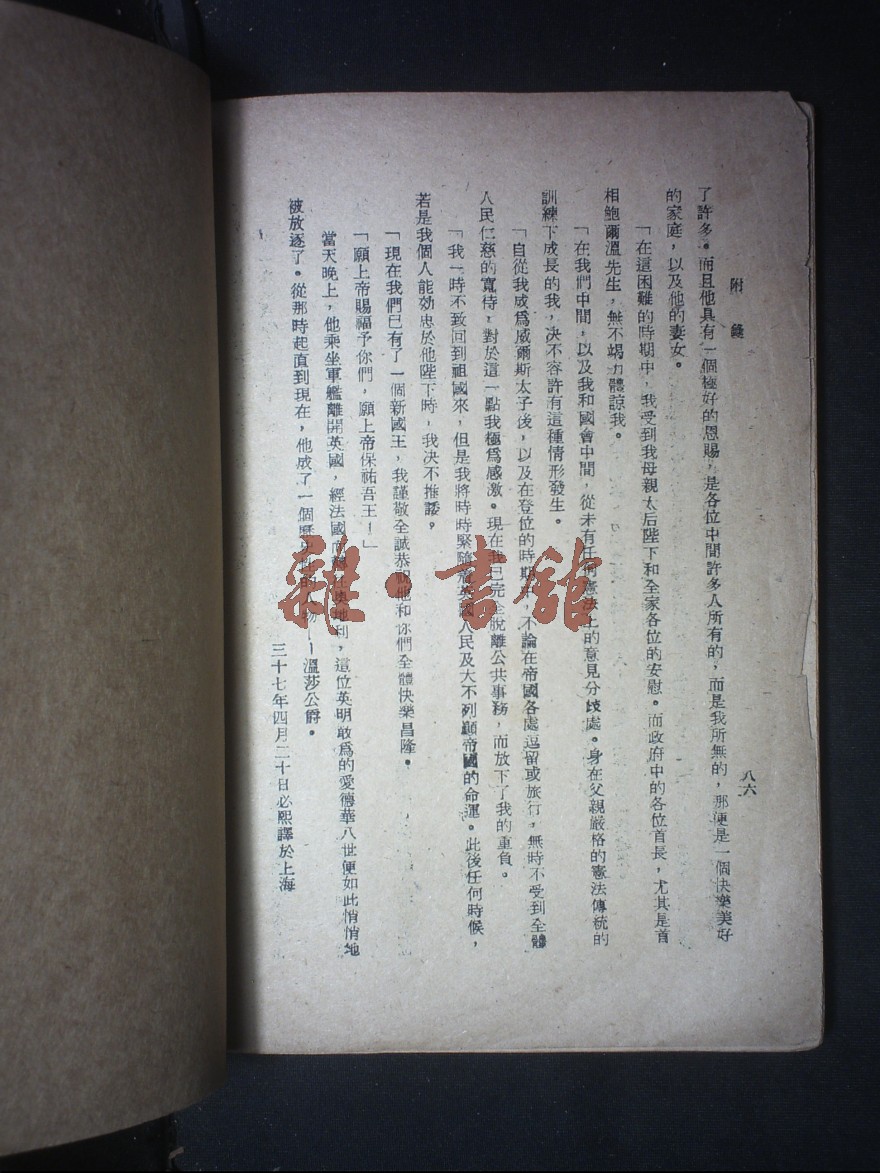 附錄
八六
了許多。而且他具有一個極好的恩賜，是各位中間許多人所有的，而是我所無的，那便是一個快樂美好
的家庭，以及他的妻女。
「在這困難的時期中，我受到我母親太后陛下和全家各位的安慰。而政府中的各位首長，尤其是首
相鮑爾溫先生，無不竭力體諒我。
「在我們中間，以及我和國會中間，從未有任何憲法上的意見分歧處。身在父親嚴格的憲法傳統的
訓練下成長的我，决不容許有這種情形發生。
「自從我成爲威爾斯太子後，以及在登位的時期，不論在帝國各處逗留或旅行，無時不受到全體
人民仁慈的寬待，對於這一點我極爲感激。現在我已完全脫離公共事務，而放下了我的重負。
「我一時不致回到祖國來，但是我將時時緊隨着英國人民及大不列顚帝國的命運。此後任何時候，
若是我個人能効忠於他陛下時，我决不推諉。
「現在我們已有了一個新國王，我謹敬全誠恭祝他和你們全體快樂昌隆。
「願上帝賜福予你們，願上帝保祐吾王！」
當天晚上，他乘坐軍艦離開英國，經法國而轉往奧地利，這位英明敢爲的愛德華八世便如此悄悄地
被放逐了。從那時起直到現在，他成了一個歷史性的人物——溫莎公爵。
三十七年四月二十日必熙譯於上海
雜·書館